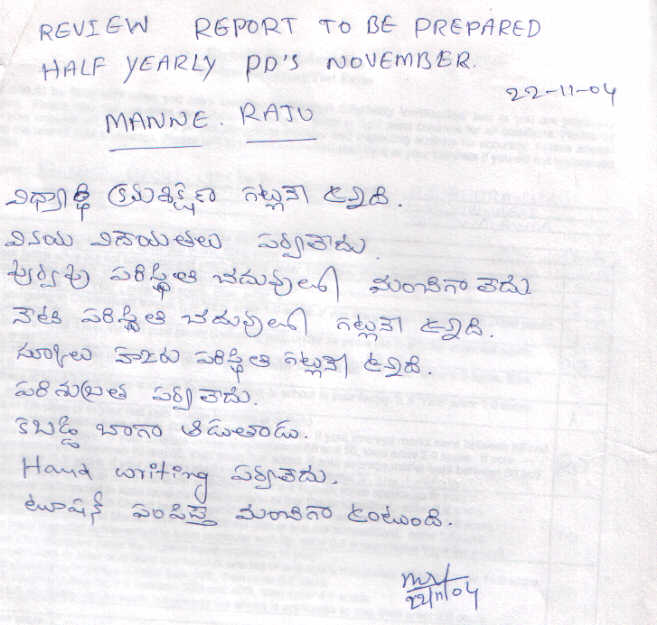 REVIEW REPORT TO BE PREPARED
HALF YEARLY PD'S NOVEMBER.
22-11-04
MANNE. RAJU
విద్యార్థి క్రమశిక్షణ గట్లునే ఉన్నది.
వినయ విదేయతలు పర్వాలేదు
పూర్వపు పరిస్థితి చదువులలో మంచిగా లేదు
నేటి పరిస్థితి చదువులలో గట్లునే ఉన్నది.
స్కూలు హాజరు పరిస్థితి గట్లునే ఉన్నది.
పరిశుభ్రత పర్వాలేదు.
కబడ్డి బాగా ఆడుతాడు.
Hand writing పర్వాలేదు.
టూషన్ పంపిస్తే మంచిగా ఉంటుంది.
22/11/04